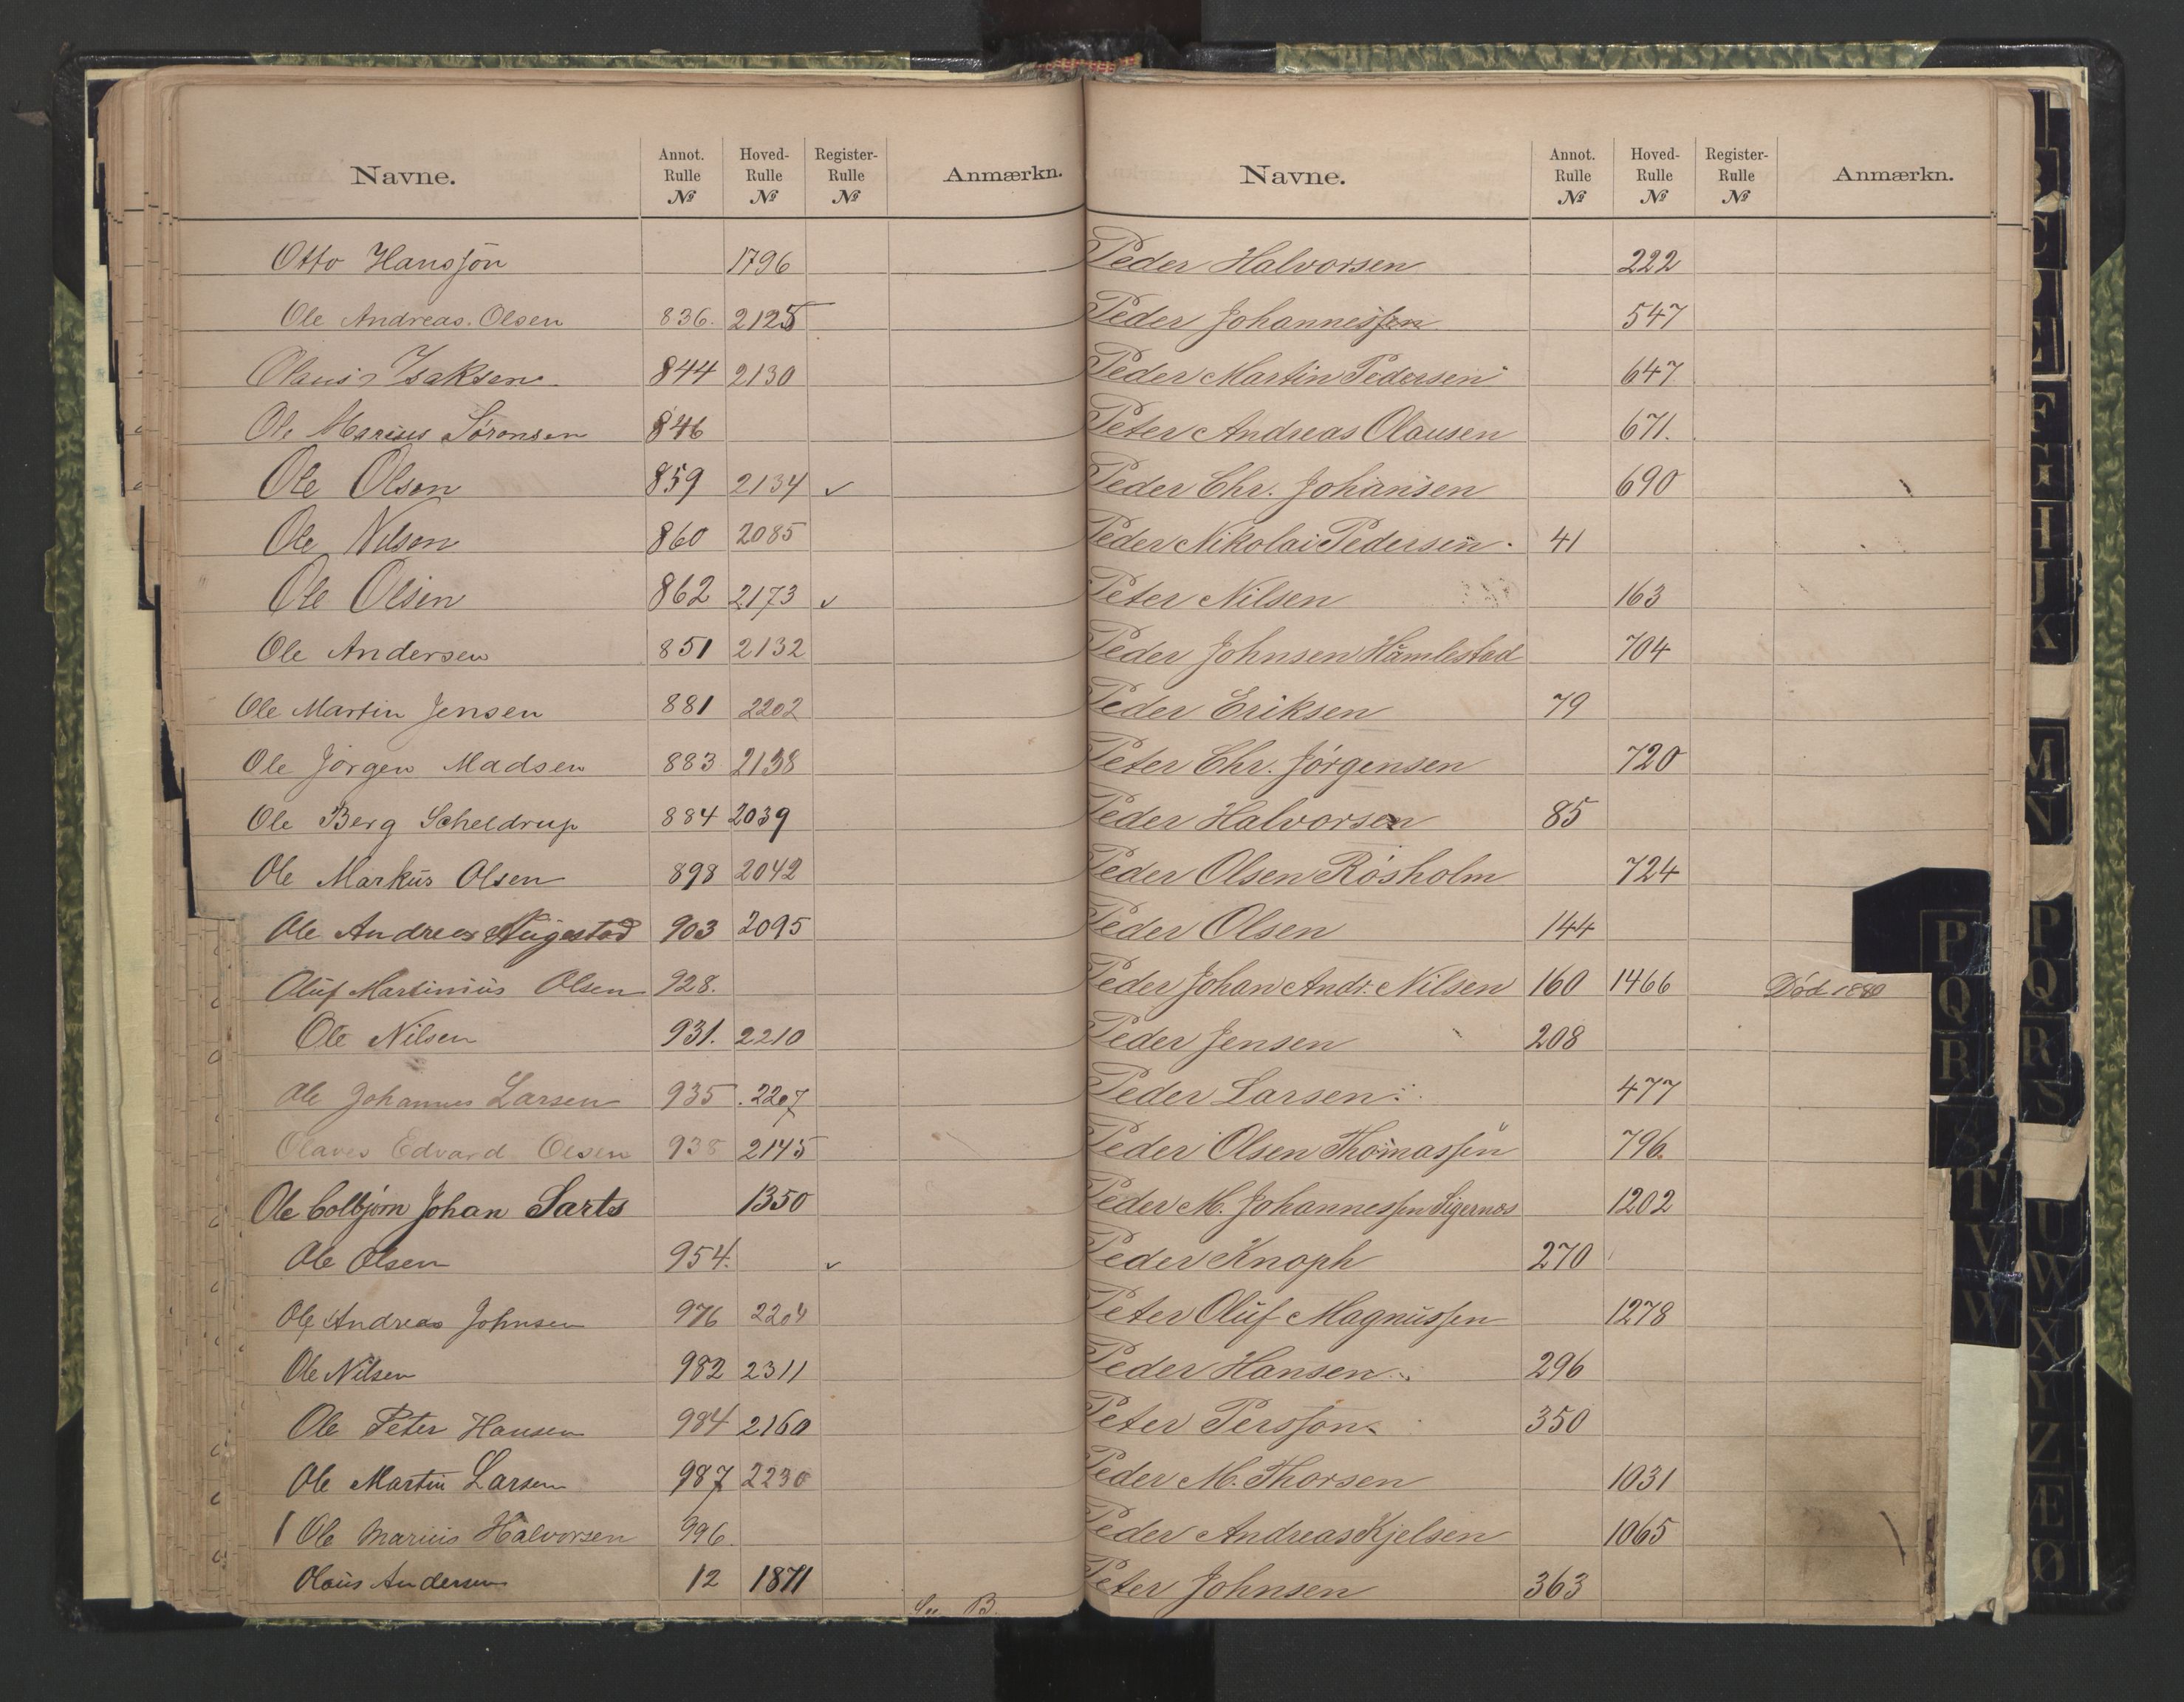 Navne. Annot. Rulle № Hoved-Rulle № Register-Rulle № Anmærkn.
Otto Hanssön 1796
Ole Andreas Olsen 836. 2125
Olaus Isaksen 844 2130
Ole Marius Sörensen 846
Ole Olsen 859 2134 ✓
Ole Nilsen 860 2085
Ole Olsen 862 2173 ✓
Ole Andersen 851 2132
Ole Martin Jensen 881 2202
Ole Jörgen Madsen 883 2138
Ole Berg Scheldrup 884 2039
Ole Markus Olsen 898 2042
Ole Andreas 903 2095
Oluf Martinius Olsen 928.
Ole Nilsen 931. 2210
Ole Johannes Larsen 935 2207
Olaves Edvard Olsen 938 2145
Ole Colbjörn Johan Sarts 1350
Ole Olsen 954. ✓
Ole Andreas Johnsen 976 2204
Ole Nilsen 982 2311
Ole Peter Hansen 984 2160
Ole Martin Larsen 987 2230
Ole Marius Halvorsen 996.
Olaus Andersen 12 1871
B.
Navne. Annot. Rulle № Hoved-Rulle № Register-Rulle № Anmærkn.
Peder Halvorsen 222
Peder Johannessen 547
Peder Martin Pedersen 647
Peter Andreas Olausen 671.
Peder Chr. Johansen 690
Peder Nikolai Pedersen. 41
Peter Nilsen 163
Peder Johnsen Hamlestad 704
Peder Eriksen 79
Peter Chr. Jörgensen 720
Peder Halvorsen 85
Peder Olsen Rösholm 724
Peder Olsen 144
Peder Johan Andr. Nilsen 160 1466 Död 1880
Peder Jensen 208
Peder Larsen 477
Peder Olsen Thomassen 796.
Peder M. Johannessen Sigernæs 1202
Peder Knoph 270
Peter Oluf Magnussen 1278
Peder Hansen 296
Peter Persson 350
Peder M. Thorsen 1031
Peder Andreas Kjelsen 1065
Peter Johnsen 363
P
Q
R
S
T
V
W
C
D
E
F
G
H
J
K
M
N
P
Q
R
S
U
W
X
Y
Z
Æ
Ø